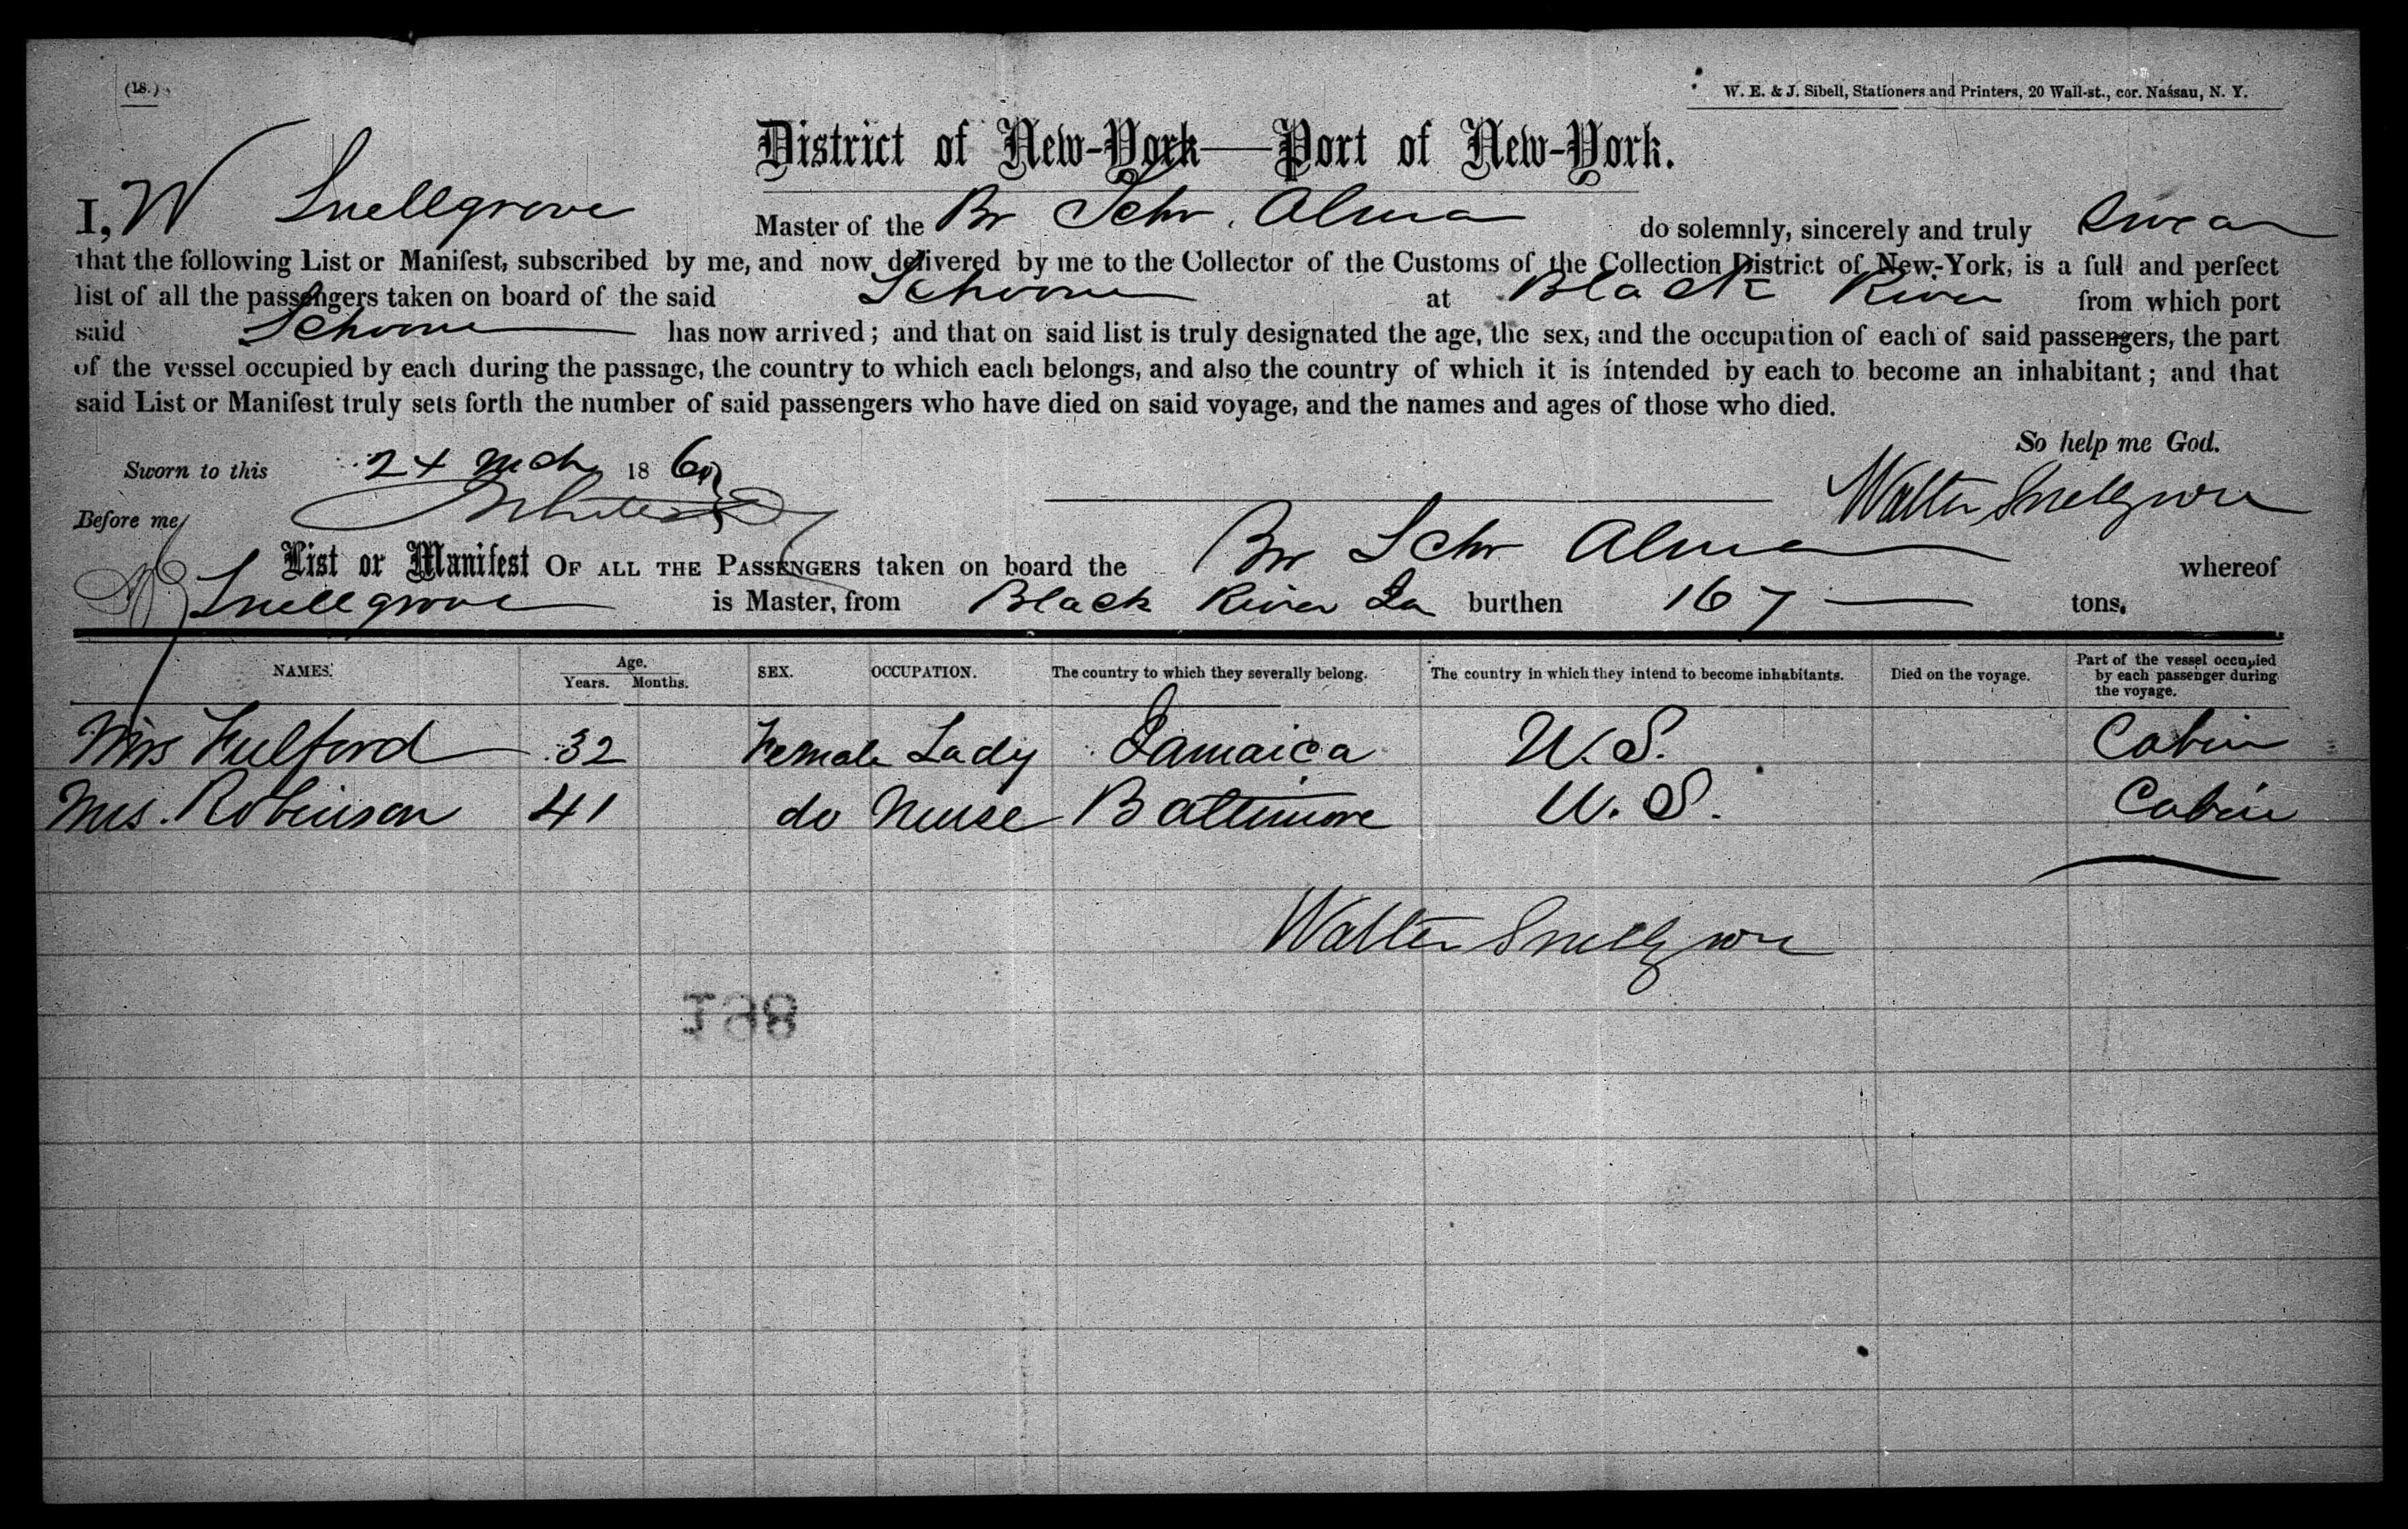 (18.)
W. E. & J. Sibell, Stationers and Printers, 20 Wall-st., cor. Nassau, N. Y.
District of New-York—Port of New-York.
I, W Snellgrove Master of the Br Schr. Alma do solemnly, sincerely and truly Swear
that the following List or Manifest, subscribed by me, and now delivered by me to the Collector of the Customs of the Collection District of New-York, is a full and perfect
list of all the passengers taken on board of the said Schooner at Black River from which port
said Schooner has now arrived; and that on said list is truly designated the age, the sex, and the occupation of each of said passengers, the part
of the vessel occupied by each during the passage, the country to which each belongs, and also the country of which it is intended by each to become an inhabitant; and that
said List or Manifest truly sets forth the number of said passengers who have died on said voyage, and the names and ages of those who died.
So help me God.
Sworn to this 24 Mch 18
Walter Snellgrove
Before me
List or Manifest OF ALL THE PASSENGERS taken on board the Br Schr Alma whereof
Snellgrove is Master, from Black River Ja burthen 167 — tons.
NAMES. Age. Years. Months. SEX. OCCUPATION. The country to which they severally belong. The country in which they intend to become inhabitants. Died on the voyage. Part of the vessel occupied by each passenger during the voyage.
Mrs Fulford 32 Female Lady Jamaica U.S. Cabin
Mrs. Robinson 41 do Nurse Baltimore U.S. Cabin
Walter Snellgrove
198